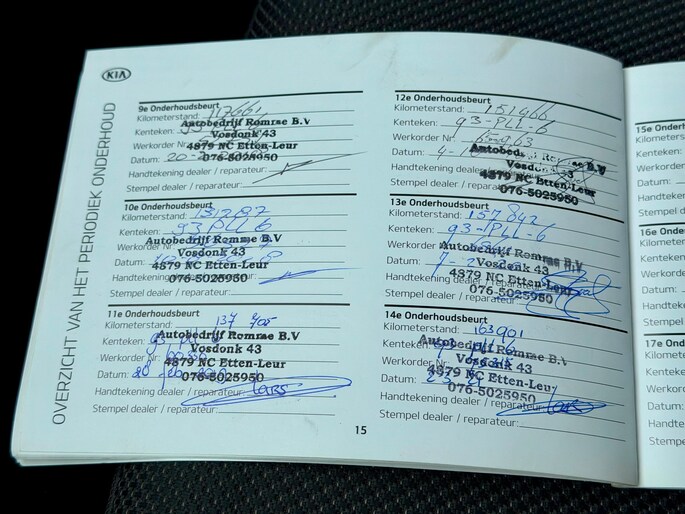 KIA
OVERZICHT VAN HET PERIODIEK ONDERHOUD
9e Onderhoudsbeurt
Kilometerstand: 117661
Kenteken:
Autobedrijf Romme B.V
Vosdonk 43
Werkorder Nr
4879 NC Etten-Leur
Datum: 20-
076-5025950
Handtekening dealer / reparateur:
Stempel dealer / reparateur:
10e Onderhoudsbeurt
Kilometerstand: 131287
Kenteken: 93 PLL 6
Autobedrijf Romme B.V
Werkorder Nr
Vosdonk 43
Datum:
4879 NC Etten-Leur
Handtekening
076-5025950
Stempel dealer / reparateur:
11e Onderhoudsbeurt
Kilometerstand: 137 705
Autobedrijf Romme B.V
Kenteken:
Vosdonk 43
Werkorder Nr
4879 NC Etten-Leur
Datum: 20
076-5025950
Handtekening dealer / reparateur: Lars
Stempel dealer / reparateur:
15
12e Onderhoudsbeurt
Kilometerstand: 151466
Kenteken: 93-PLL-6
Werkorder Nr
Autobedrijf Romme B.V
Datum: 4-
Vosdonk 43
4879 NC Etten-Leur
Handtekening dealer / reparateur:
076-5025950
Stempel dealer / reparateur:
13e Onderhoudsbeurt
Kilometerstand: 157842
Kenteken: 93-PLL-6
Werkorder Nr
Autobedrijf Romme B.V
Vosdonk 43
Datum: 7-2
4879 NC Etten-Leur
Handtekening dealer
076-5025950
Stempel dealer / reparateur:
14e Onderhoudsbeurt
Kilometerstand: 163901
Kenteken:
Autobedrijf Romme B.V
Vosdonk 43
Werkorder Nr
4879 NC Etten-Leur
Datum:
076-5025950
Handtekening dealer / reparateur: Lars
Stempel dealer / reparateur:
15e Onde
Kilometers
Kenteken:
Werkorder
Datum:
Handteke
Stempel d
16e On
Kilomete
Kenteke
Werkor
Datum
Handte
Stemp
17e On
Kilome
Kente
Werk
Datum:
Hand
Stemp